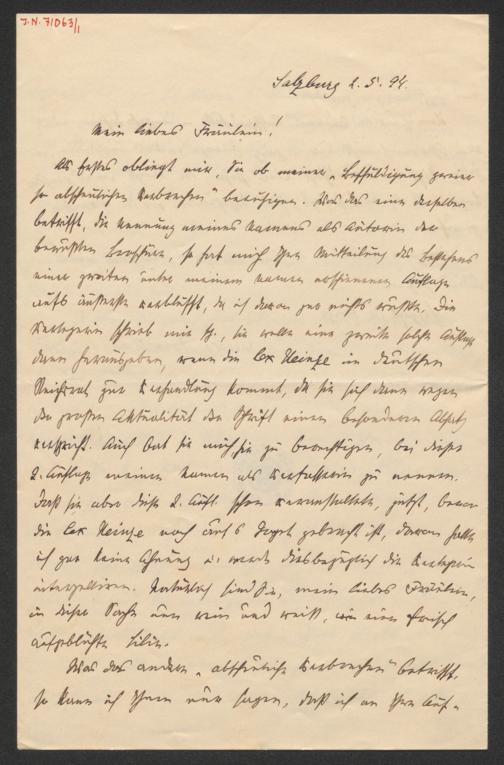 J.N. 71063/1
Salzburg 2.5.94.
Mein liebes Fräulein!
Als erstes obliegt mir, Sie ob meiner „Beschuldigung zweier
so abscheulichen Verbrechen" beruhigen. Was das eine derselben
betrifft, die Nennung meines Namens als Autorin der
bewußten Broschüre, so hat mich Ihre Mitteilung des Bestehens
einer zweiten unter meinem Namen erschienenen Auflage
aufs äußerste verblüfft, da ich davon gar nichts wußte. Die
Verlegerin schrieb mir, sie wolle eine zweite solche Auflage
dann herausgeben, wenn die Lex Heinze im deutschen
Reichsrat zur Verhandlung kommt, da sie sich dann wegen
der großen Aktualität der Schrift einen besonderen Absatz
verspricht. Auch bat sie mich, sie zu berechtigen, bei dieser
2. Auflage meinen Namen als Verfasserin zu nennen.
Daß sie aber diese 2. Aufl. schon veranstaltete, jetzt, bevor
die Lex Heinze noch aufs Tapet gebracht ist, davon hatte
ich gar keine Ahnung u. werde diesbezüglich die Verlegerin
interpellieren. Natürlich sind Sie, mein liebes Fräulein,
in dieser Sache nun rein und weiß, wie eine frisch
aufgeblühte Lilie.
Was das andere „abscheuliche Verbrechen" betrifft,
so kann ich Ihnen nur sagen, daß ich an Ihren Auf-